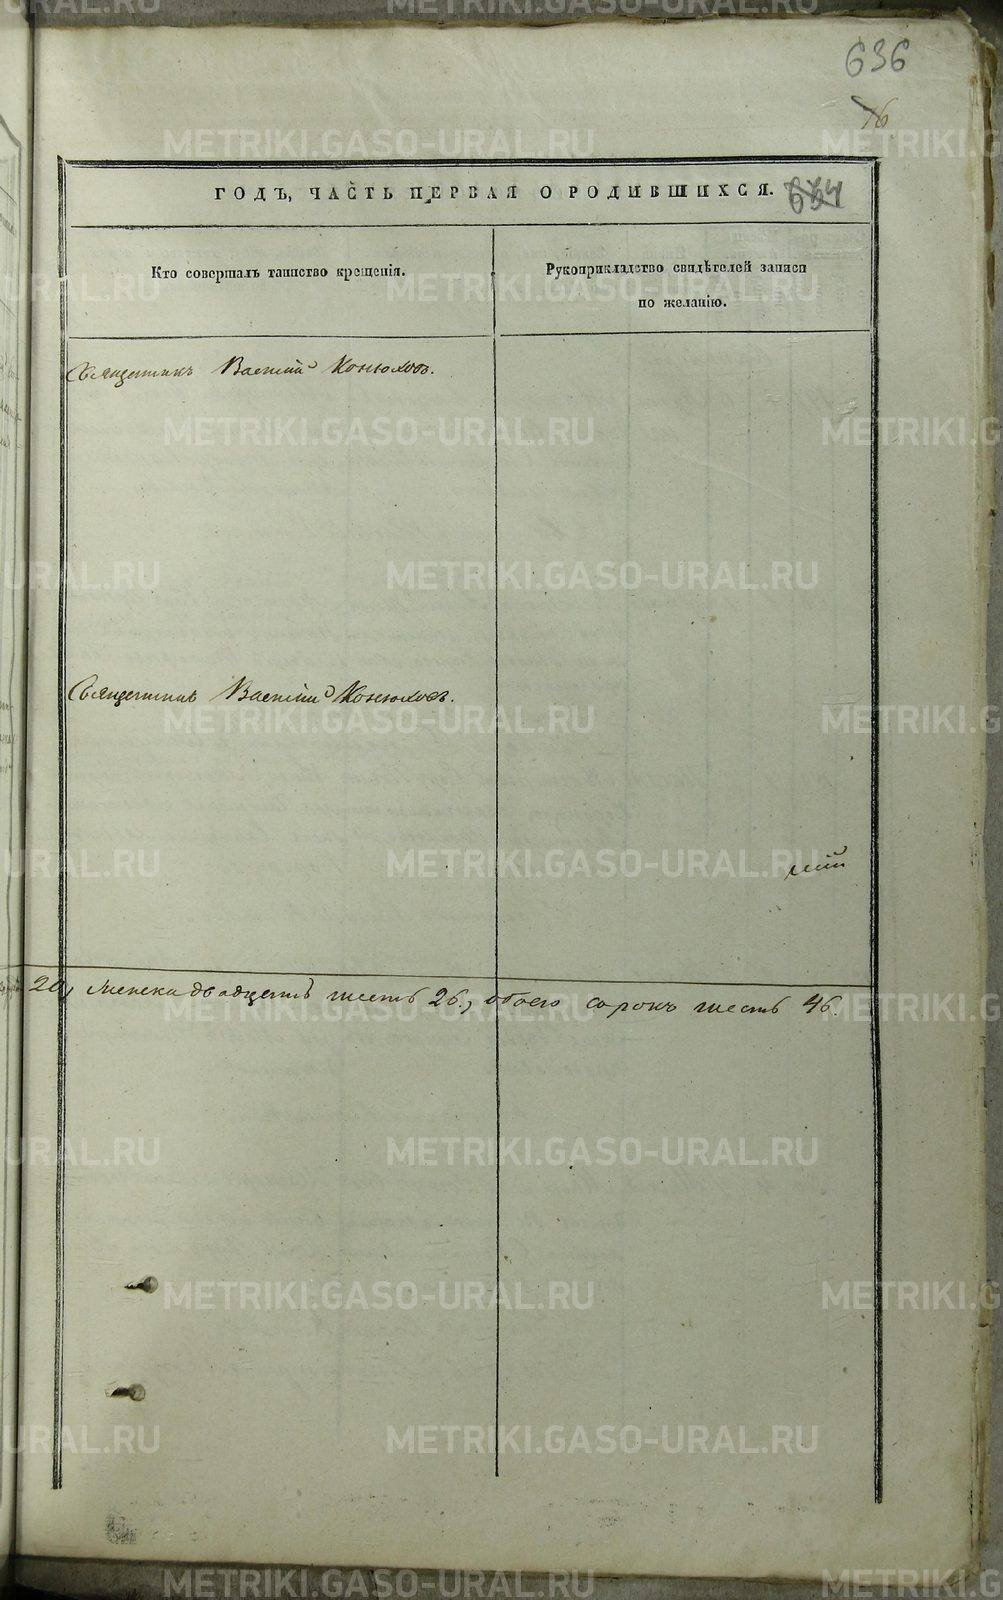 636
76
ГОДЪ, ЧАСТЬ ПЕРВАЯ О РОДИВШИХСЯ. 634
Кто совершалъ таинство крещенія.
Рукоприкладство свидѣтелей записи
по желанію.
Священникъ Василій Конюховъ.
Священникъ Василій Конюховъ.
лій
20, женска двадцать шесть 26, обоего сорокъ шесть 46.
METRIKI.GASO-URAL.RU